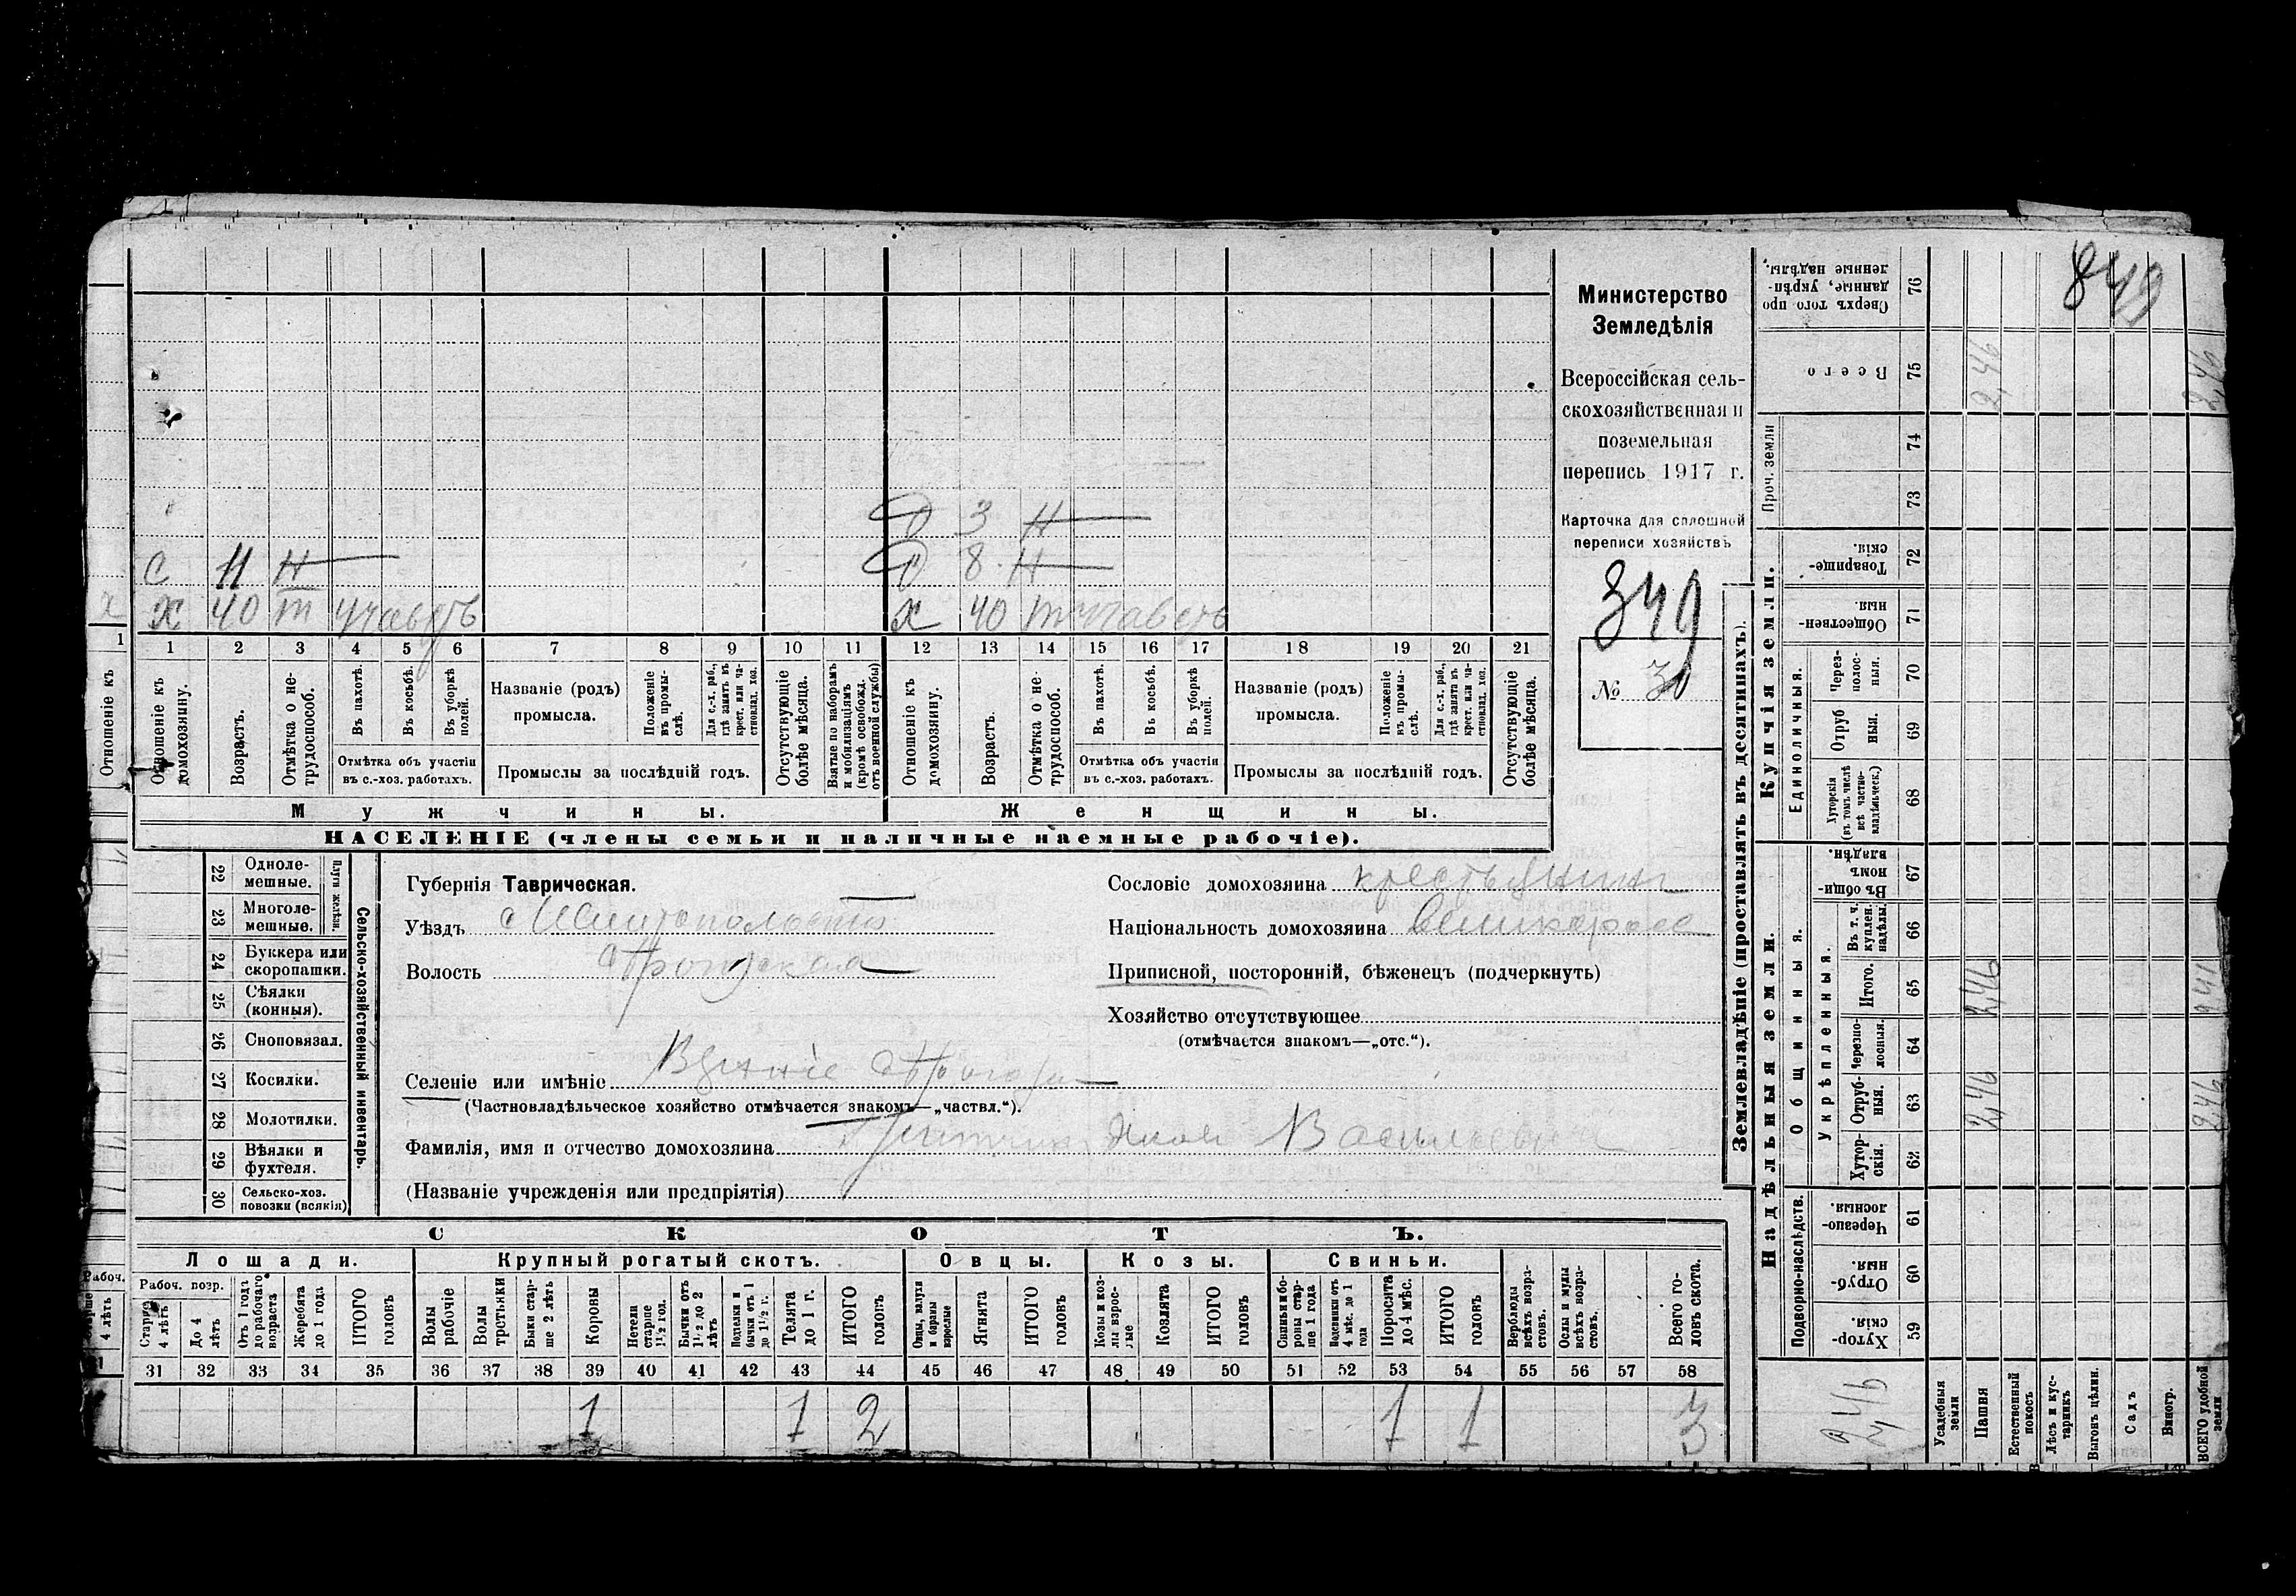 849
Министерство
Земледѣлія
Всероссійская сель-
скохозяйственная и
поземельная
перепись 1917 г.
Карточка для сплошной
переписи хозяйствъ
349
№ 30
О 3 Н
С 11 Н О 8 Н
Х Х 40 т Х 40 т
1 1 2 3 4 5 6 7 8 9 10 11 12 13 14 15 16 17 18 19 20 21
Отношеніе къ
Отношеніе къ домохозяину.
Возрастъ.
Отмѣтка о не-трудоспособ.
Въ пахотѣ.
Въ косьбѣ.
Въ уборкѣ полей.
Отмѣтка объ участіи
въ с.-хоз. работахъ.
Названіе (родъ)
промысла.
Положеніе въ промы-слѣ.
Для с.-х. раб., гдѣ занятъ въ крест. или ча-стновлад. хоз.
Промыслы за послѣдній годъ.
Отсутствующіе болѣе мѣсяца.
Взятые по наборамъ и мобилизаціямъ (кромѣ освобожд. отъ военной службы)
Отношеніе къ домохозяину.
Возрастъ.
Отмѣтка о не-трудоспособ.
Въ пахотѣ.
Въ косьбѣ.
Въ уборкѣ полей.
Отмѣтка объ участіи
въ с.-хоз. работахъ.
Названіе (родъ)
промысла.
Положеніе въ промы-слѣ.
Для с.-х. раб., гдѣ занята въ крест. или ча-стновлад. хоз.
Промыслы за послѣдній годъ.
Отсутствующіе болѣе мѣсяца.
Мужчины. Женщины.
НАСЕЛЕНІЕ (члены семьи и наличные наемные рабочіе).
22 Одноле-мешные.
23 Многоле-мешные.
Плуги желѣзн.
24 Буккера или скоропашки.
25 Сѣялки (конныя).
26 Сноповязал.
27 Косилки.
28 Молотилки.
29 Вѣялки и фухтеля.
30 Сельско-хоз. повозки (всякія)
Сельско-хозяйственный инвентарь.
Губернія Таврическая.
Уѣздъ
Волость
Селеніе или имѣніе
(Частновладѣльческое хозяйство отмѣчается знакомъ—„частвл.“).
Фамилія, имя и отчество домохозяина Яковъ Васильевичъ
(Названіе учрежденія или предпріятія)
Сословіе домохозяина крестьянинъ
Національность домохозяина великороссъ
Приписной, посторонній, бѣженецъ (подчеркнуть)
Хозяйство отсутствующее
(отмѣчается знакомъ—„отс.“).
СКОТЪ.
Лошади. Крупный рогатый скотъ. Овцы. Козы. Свиньи.
Рабоч.
4 лѣтъ
Рабоч. возр.
Старше 4 лѣтъ
До 4 лѣтъ
Отъ 1 года до рабочаго возраста
Жеребята до 1 года
ИТОГО головъ
Волы рабочіе
Волы третьяки
Быки стар-ше 2 лѣтъ
Коровы
Нетели старше 1½ год.
Бычки отъ 1½ до 2 лѣтъ
Подтелки и бычки отъ 1 до 1½ г.
Телята до 1 г.
ИТОГО головъ
Овцы, валухи и бараны взрослые
Ягнята
ИТОГО головъ
Козы и коз-лы взрос-лые
Козлята
ИТОГО головъ
Свиньи и бо-ровы стар-ше 1 года
Подсвинки отъ 4 мѣс. до 1 года
Поросята до 4 мѣс.
ИТОГО головъ
Верблюды всѣхъ возра-стовъ.
Ослы и мулы всѣхъ возра-стовъ.
Всего го-ловъ скота.
31 32 33 34 35 36 37 38 39 40 41 42 43 44 45 46 47 48 49 50 51 52 53 54 55 56 57 58
1 1 2 1 1 3
Землевладѣніе (проставлять въ десятинахъ).
Купчія земли.
Надѣльныя земли.
Сверхъ того про-данные, укрѣп-ленные надѣлы. 76
Всего 75 2,46 2,46
Проч. земли 74
73
Товарище-скія. 72
Обществен-ныя. 71
Единоличныя.
Через-полос-ныя. 70
Отруб-ныя. 69
Хуторскія (въ томъ числѣ всѣ частно-владѣльческ.) 68
Общинныя.
Въ общин-номъ владѣн. 67
Укрѣпленныя.
Въ т. ч. куплен. надѣлы. 66
Итого. 65 2,46
Черезпо-лосныя. 64
Отруб-ныя. 63 2,46 2,46
Хутор-скія. 62
Подворно-наслѣдств.
Черезпо-лосныя. 61
Отруб-ныя. 60
Хутор-скія. 59
2,46
Усадебныя земли
Пашня
Естественный покосъ
Лѣсъ и кус-тарникъ
Выгонъ цѣлин.
Садъ
Виногр.
ВСЕГО удобной земли